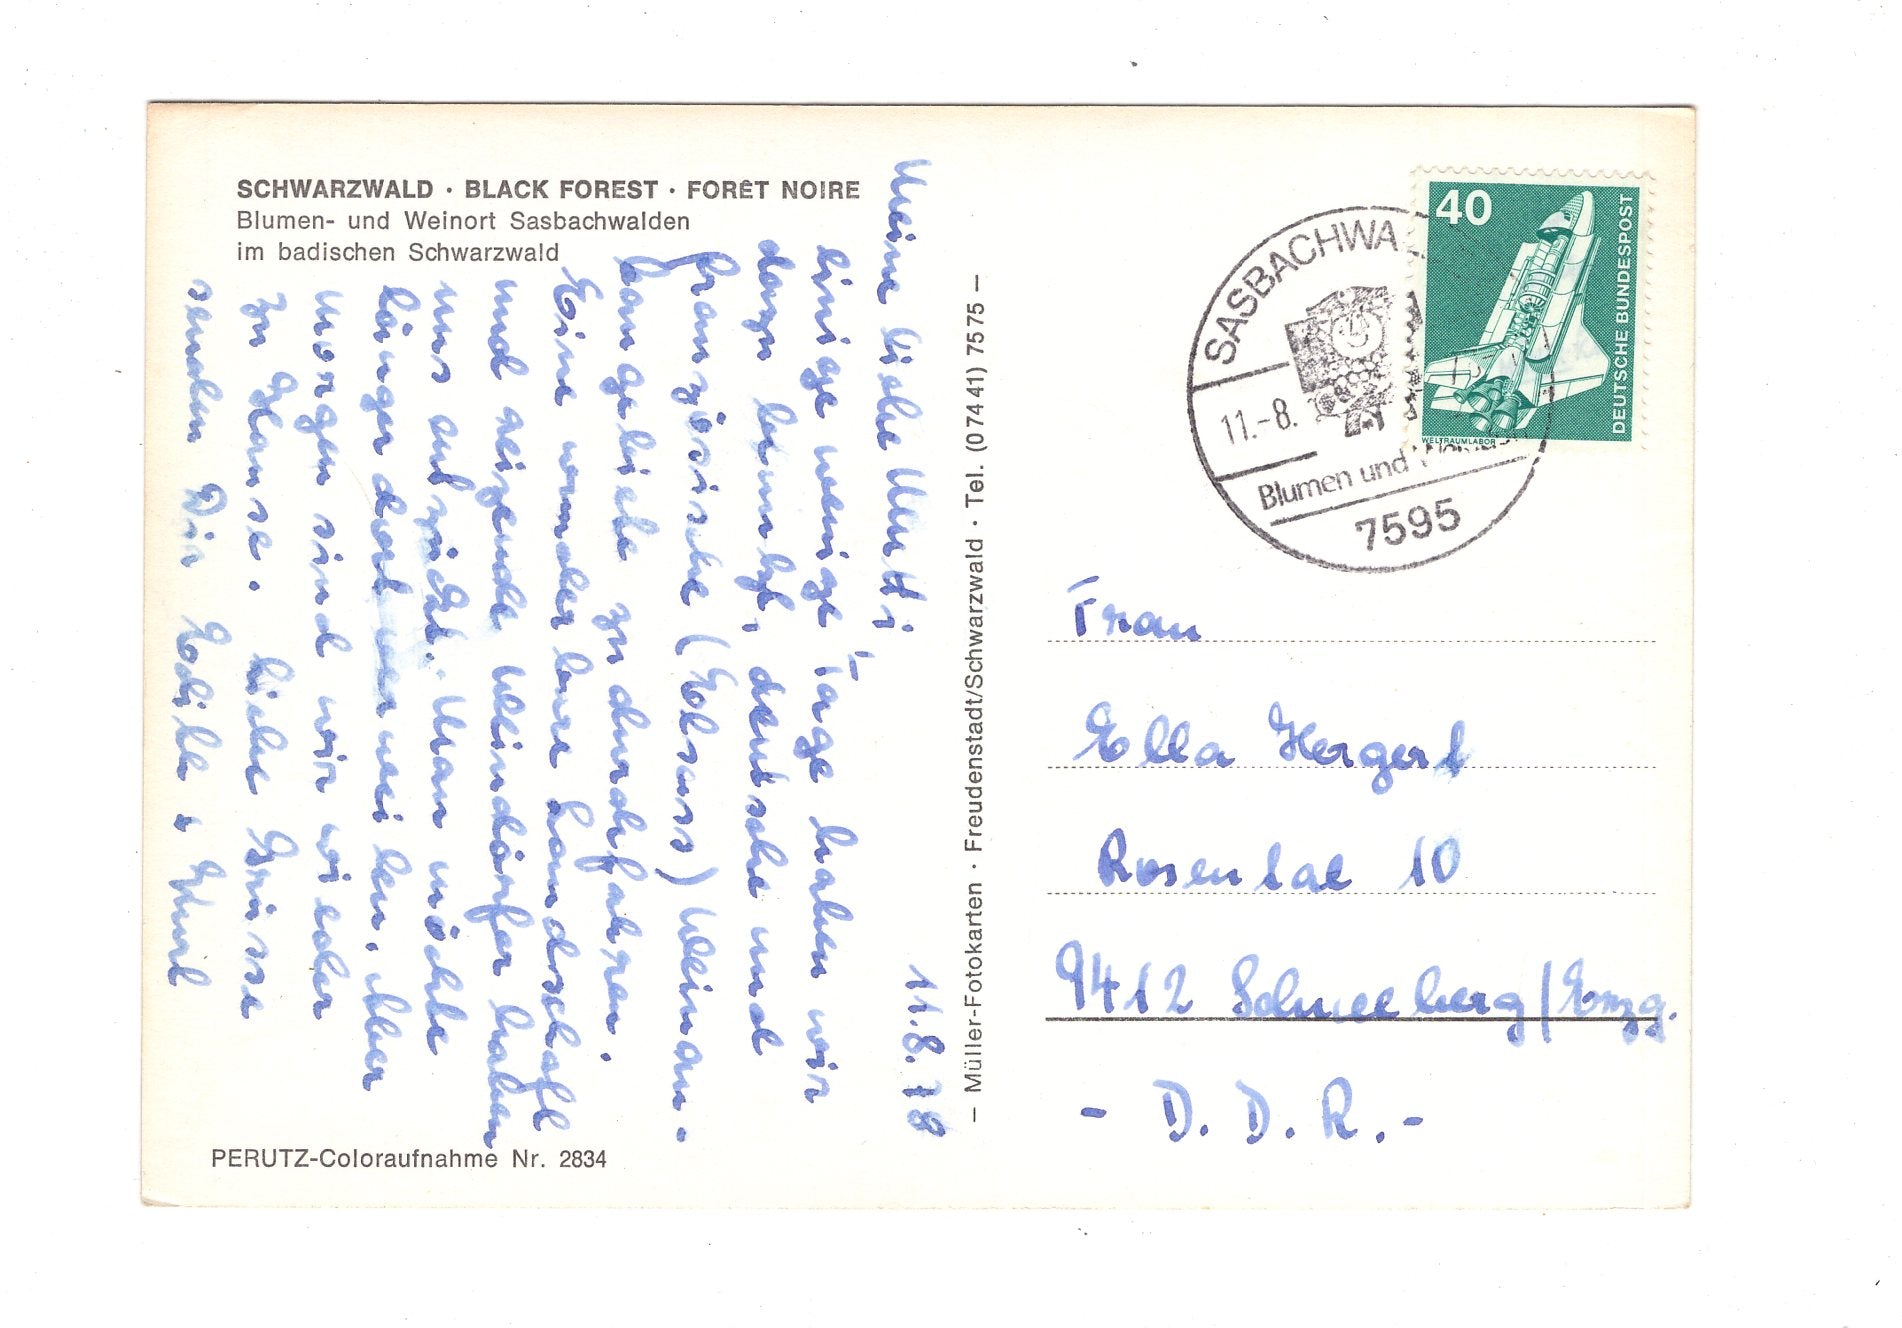 SCHWARZWALD · BLACK FOREST · FORÊT NOIRE
Blumen- und Weinort Sasbachwalden
im badischen Schwarzwald
11.8.78
Meine liebe Mutti,
einige wenige Tage haben wir
dazu benutzt, deutsche und
französische (Elsass) Weinan-
baugebiete zu durchfahren.
Eine wunderbare Landschaft
und reizende Weindörfer haben
uns entzückt. Man möchte
länger dort verweilen. Aber
morgen sind wir wieder
zu Hause. Liebe Grüsse
senden Dir Edith + Kurt
PERUTZ-Coloraufnahme Nr. 2834
— Müller-Fotokarten · Freudenstadt/Schwarzwald · Tel. (07441) 7575 —
SASBACHWA
11.-8.
Blumen und
7595
40
DEUTSCHE BUNDESPOST
WELTRAUMLABOR
Frau
Ella Hergert
Rosental 10
9412 Schneeberg/Erzg.
- D. D. R. -